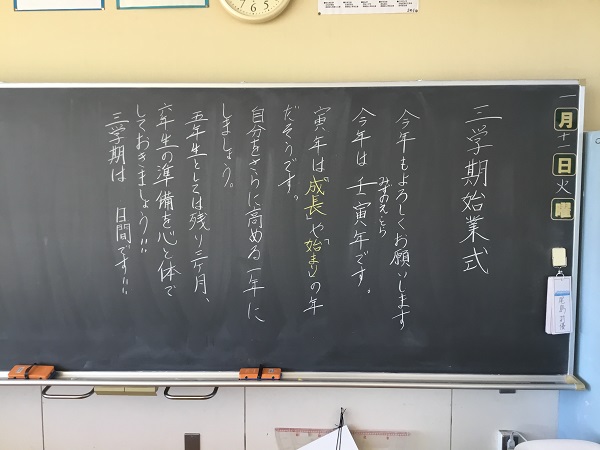 一月十一日火曜
三学期始業式
今年もよろしくお願いします
今年は壬寅年です。
みずのえとら
寅年は「成長」や「始まり」の年
だそうです。
自分をさらに高める一年に
しましょう。
五年生としては残り三ヶ月、
六年生の準備を心と体で
しておきましょう!!
三学期は 日間です!!